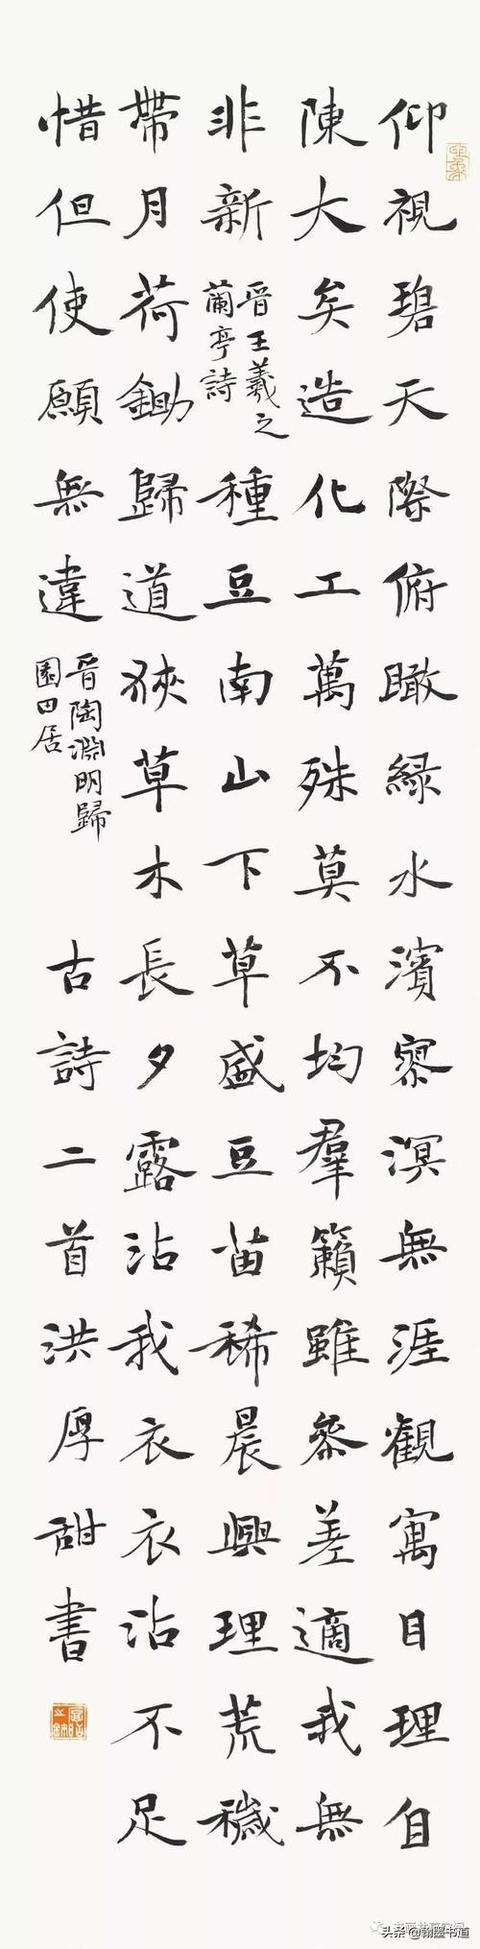 仰視碧天際俯瞰緑水濱寥溟無涯觀寓目理自
陳大矣造化工萬殊莫不均羣籟雖參差適我無
非新
晉王羲之
蘭亭詩
種豆南山下草盛豆苗稀晨興理荒穢
帶月荷鋤歸道狹草木長夕露沾我衣衣沾不足
惜但使願無違
晉陶淵明歸
園田居
古詩二首洪厚甜書
头条 @翰墨书道